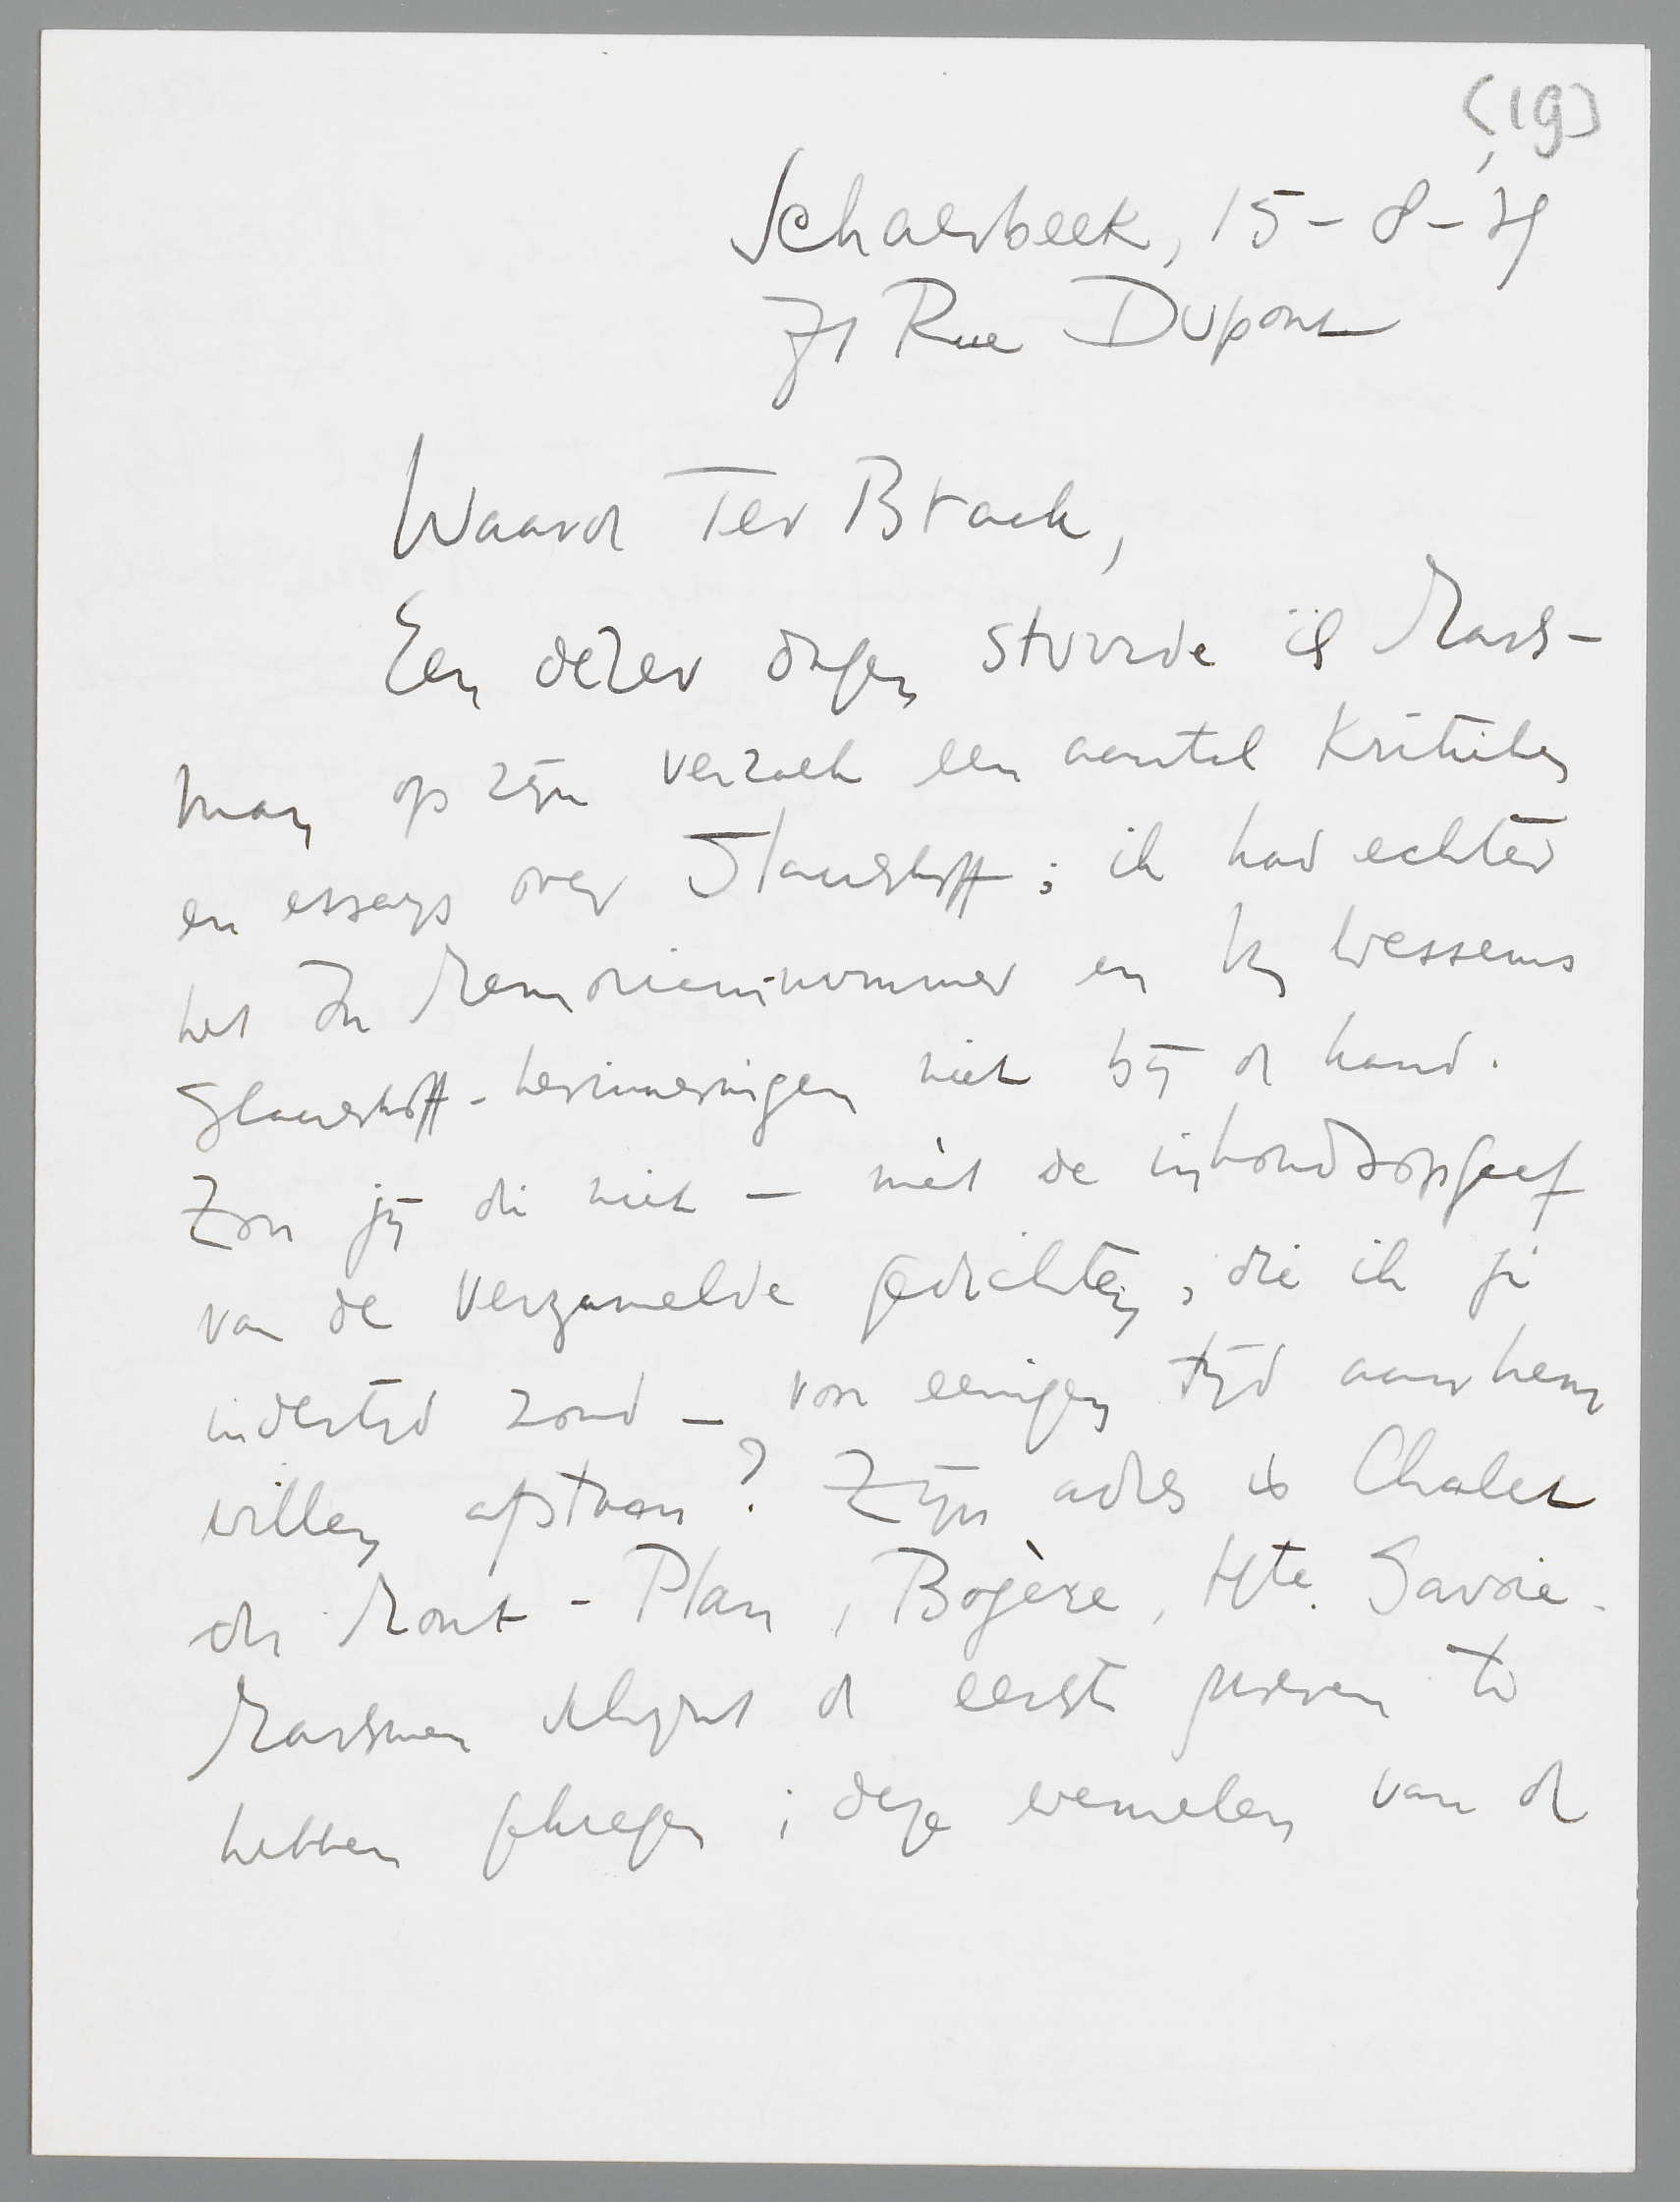 (19)
Schaerbeek, 15-8-
71 Rue Dupont
Waarde Ter Braak,
Een dezer dagen stuurde ik Mars-
man op zijn verzoek een aantal kritieken
en essays over Slauerhoff; ik had echter
het In Memoriam-nummer en Wessems
Slauerhoff-herinneringen niet bij de hand.
Zou jij die niet – mèt de inhoudsopgaaf
van de Verzamelde gedichten, die ik je
indertijd zond – voor eenigen tijd aan hem
willen afstaan? Zijn adres is Chalet
du Mont-Plan, Bogève, Hte. Savoie.
Marsman schijnt de eerste proeven te
hebben gekregen; deze wemelen van de